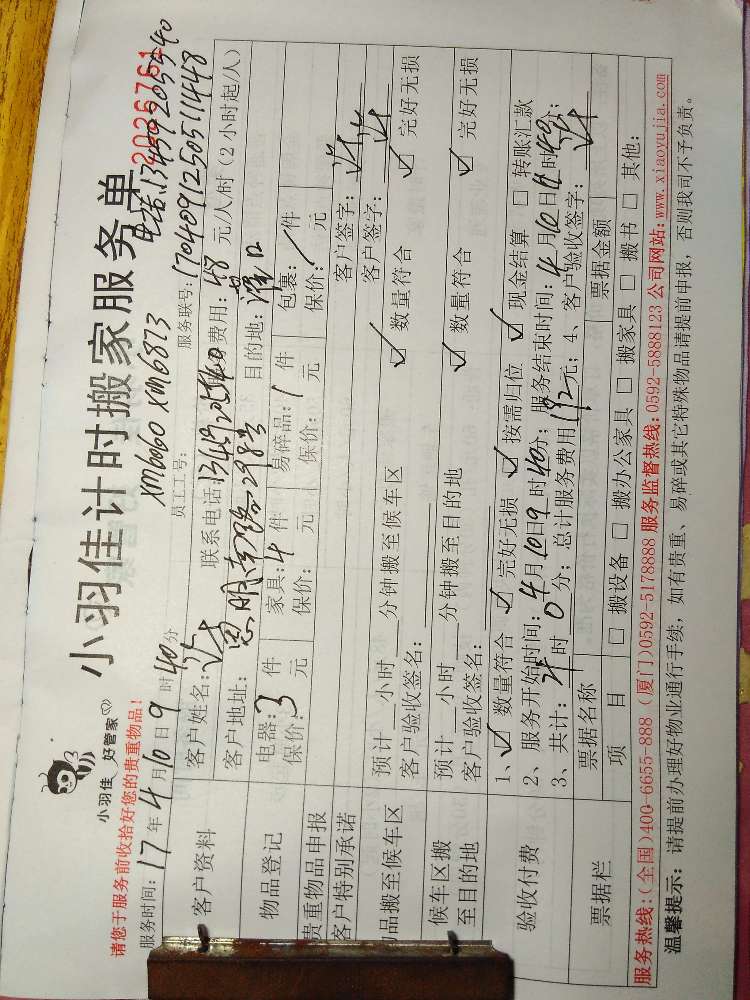 小羽佳计时搬家服务单
小羽佳 好管家
电话:13459205440
2026761
请您于服务前收拾好您的贵重物品!
XM6060 XM6873
服务时间:17年4月10日9时40分
员工工号:
服务联号:17040912505111448
客户资料
客户姓名:许
联系电话:13459205440
服务费用:48元/人/时(2小时起/人)
客户地址:思明南路298号
目的地:
物品登记
电器:3件
家具:4件
易碎品:1件
包裹:/件
保价: 元
保价: 元
保价: 元
保价:/元
贵重物品申报
客户签字:许
客户特别承诺
客户签字:许
物品搬至候车区
预计 小时 分钟搬至候车区
☑ 数量符合
☑ 完好无损
客户验收签名:
候车区搬至目的地
预计 小时 分钟搬至目的地
☑ 数量符合
☑ 完好无损
客户验收签名:
验收付费
1、☑ 数量符合 ☑ 完好无损 ☑ 按需归位 ☑ 现金结算 □ 转账汇款
2、服务开始时间:04月10日9时40分;服务结束时间:4月10日11时40分;
3、共计:2时 分;总计服务费用192元;4、客户验收签字:许
票据栏
票据名称
票据金额
项目
□ 搬设备 □ 搬办公家具 □ 搬家具 □ 搬书 □ 其他:
服务热线:(全国)400-6655-888 (厦门)0592-5178888 服务监督热线:0592-5888123 公司网站:www.xiaoyujia.com
温馨提示:请提前办理好物业通行手续,如有贵重、易碎或其它特殊物品请提前申报,否则我司不予负责。